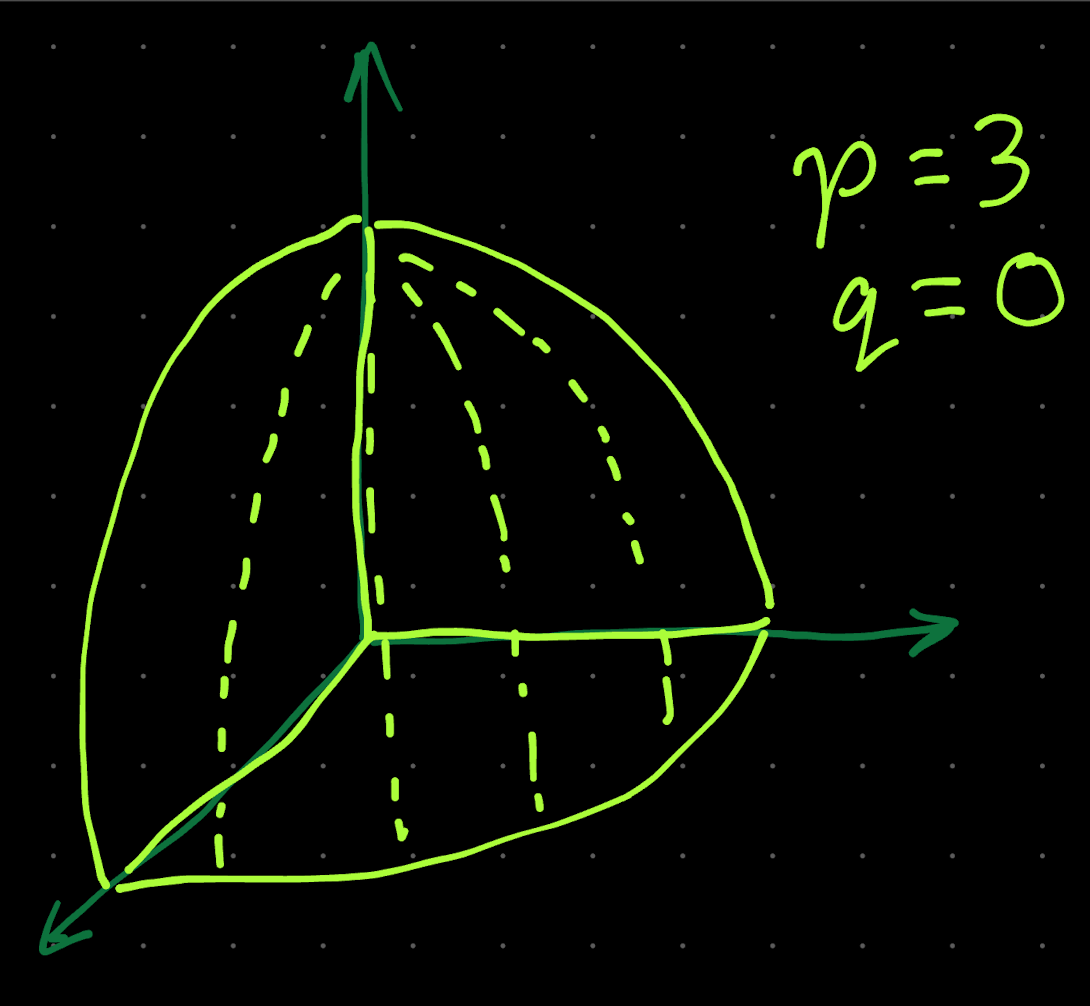 p = 3
q = 0